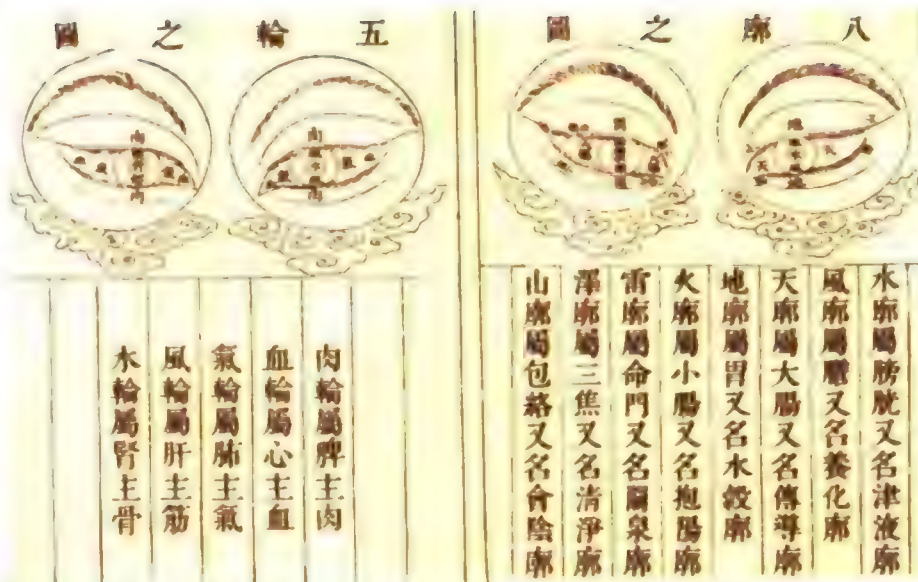 八廓之圖
水廓屬膀胱又名津液廓
風廓屬膽又名養化廓
天廓屬大腸又名傳導廓
地廓屬胃又名水穀廓
火廓屬小腸又名抱陽廓
雷廓屬命門又名關泉廓
澤廓屬三焦又名清淨廓
山廓屬包絡又名會陰廓
五輪之圖
肉輪屬脾主肉
血輪屬心主血
氣輪屬肺主氣
風輪屬肝主筋
水輪屬腎主骨